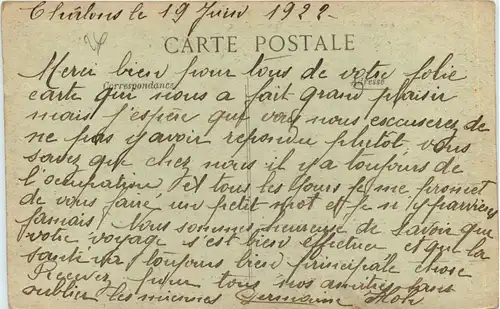 Châlons le 19 Juin 1922
CARTE POSTALE
Correspondance Adresse
Merci bien pour tous de votre jolie
carte qui nous a fait grand plaisir
mais j'espère que vous nous escuserez de
ne pas y avoir repondu plutot. vous
savez que chez nous il y a toujours de
l'ocupation, et tous les jours je me promet
de vous faire un petit mot et je n'y parviens
jamais. Nous sommes heureuse de savoir que
votre voyage s'est bien effectuer et que la
santé va toujours bien principale chose
Recevez pour tous nos amitiés sans
oublier les miennes Germaine